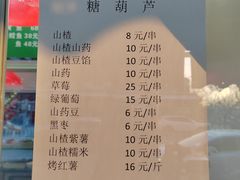 糖葫芦
山楂 8元/串
山楂山药 10元/串
山楂豆馅 10元/串
山药 10元/串
草莓 25元/串
绿葡萄 15元/串
山药豆 6元/串
黑枣 6元/串
山楂紫薯 10元/串
山楂糯米 10元/串
烤红薯 16元/斤